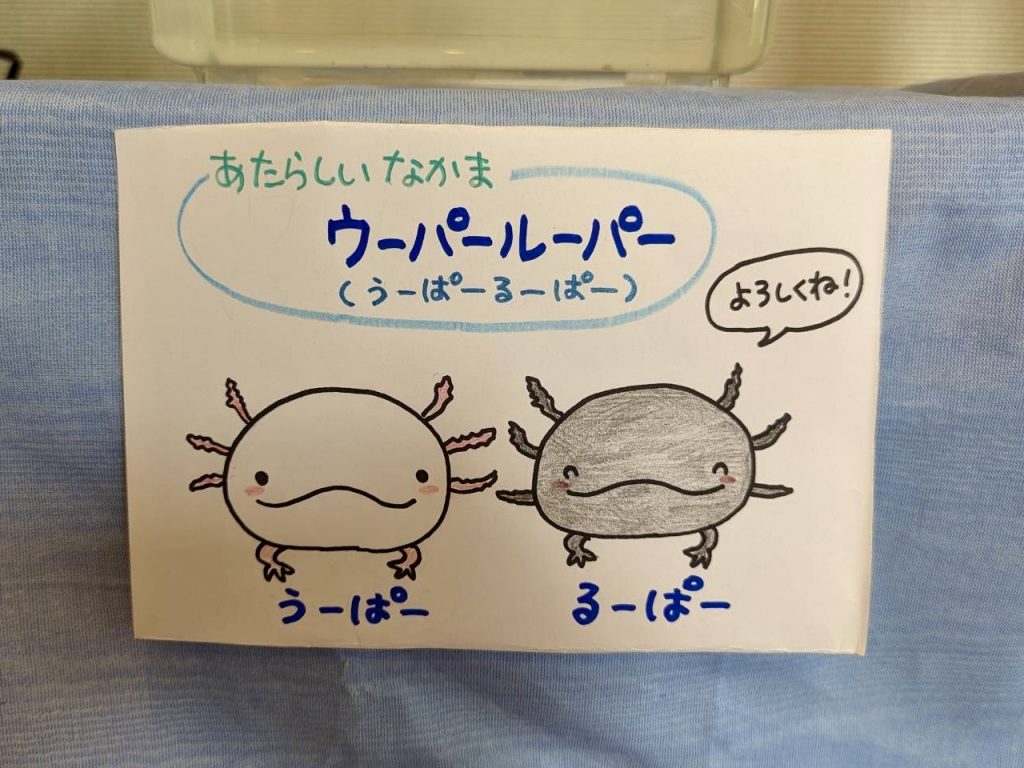 あたらしい なかま
ウーパールーパー
(うーぱーるーぱー)
よろしくね!
うーぱー
るーぱー